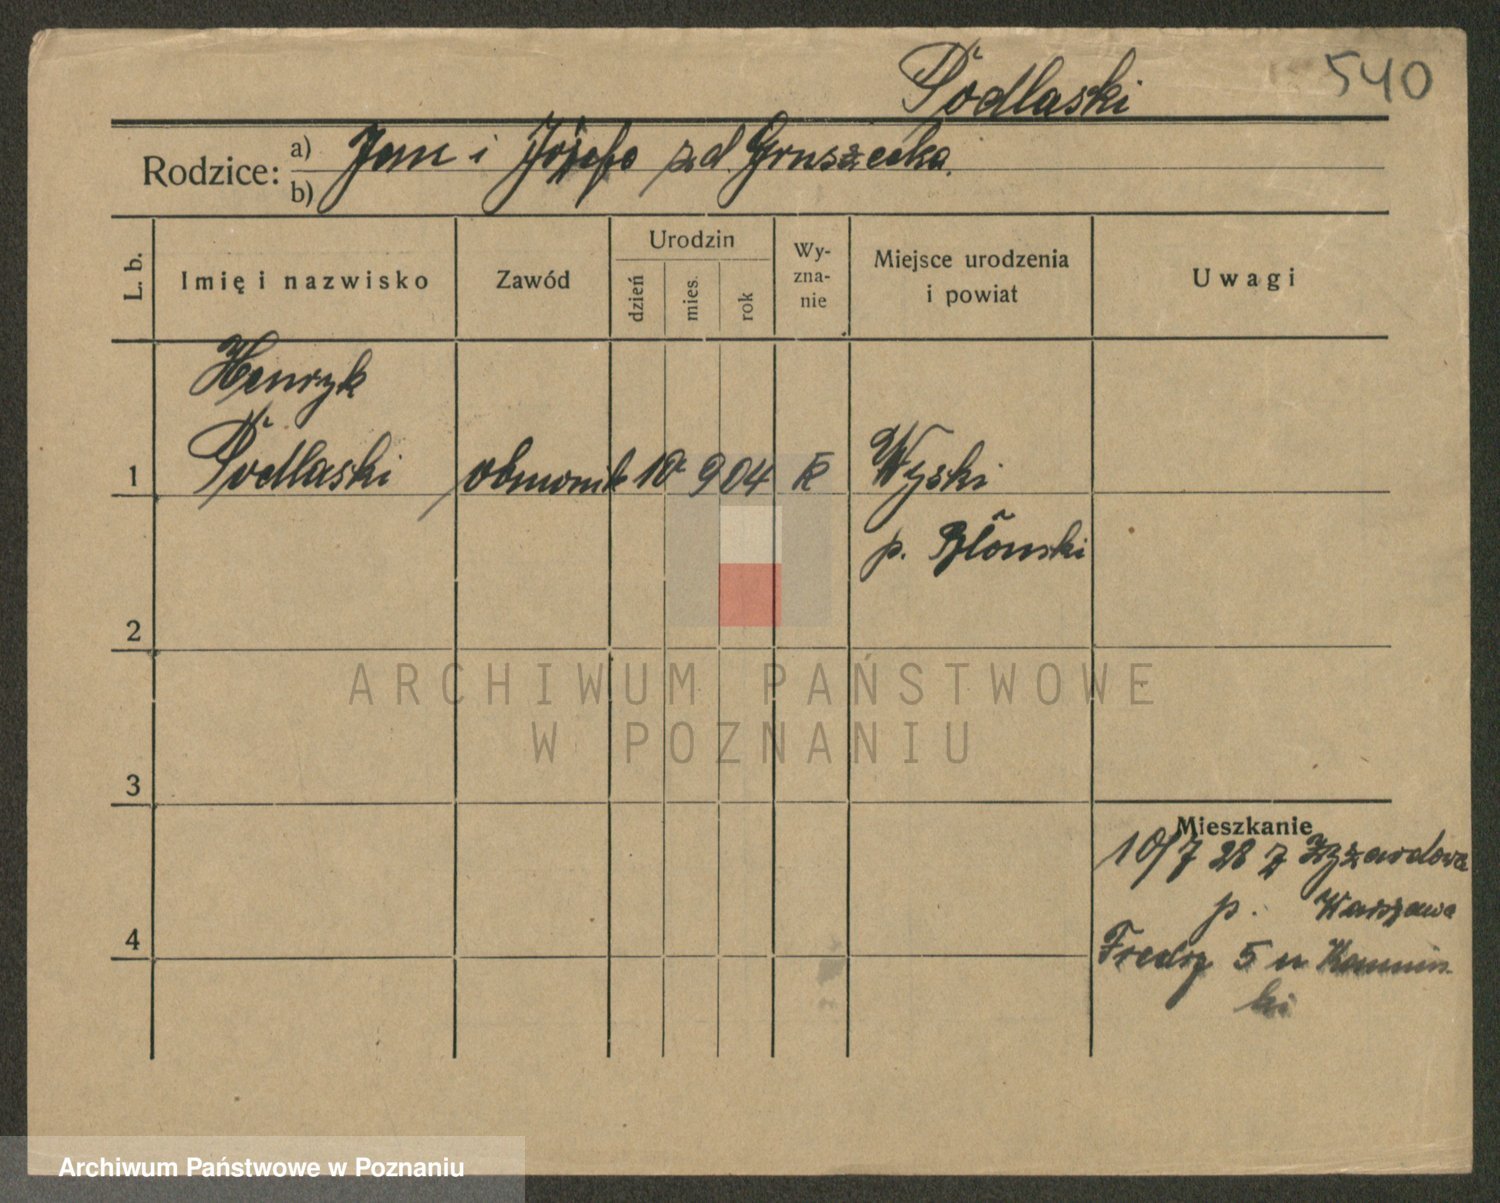 Podlaski
540
Rodzice: a) Jan i Józefa z d. Gruszecka.
b)
L. b.
Imię i nazwisko
Zawód
Urodzin
dzień
mies.
rok
Wy-
zna-
nie
Miejsce urodzenia
i powiat
Uwagi
Henryk
1 Podlaski 10 9 04 K Wyski
p. Błoński
2
3
4
Mieszkanie
10/7 28 z Żyrardowa
p. Warszawa
Fredry 5 u Kamiń
ski
ARCHIWUM PAŃSTWOWE
W POZNANIU
Archiwum Państwowe w Poznaniu